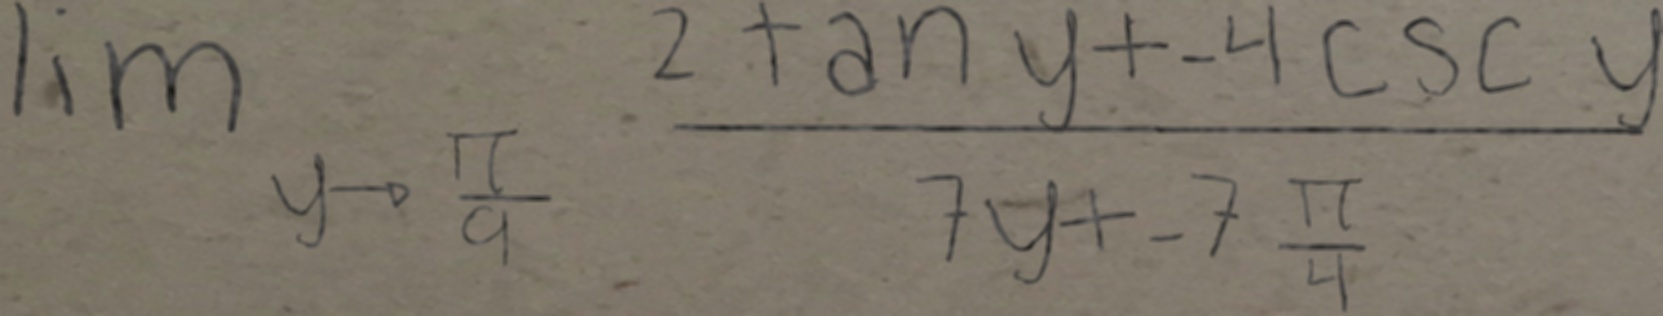 lim_{y→\frac{π}{9}} \frac{2 tan y+-4 csc y}{7y+-7\frac{π}{4}}